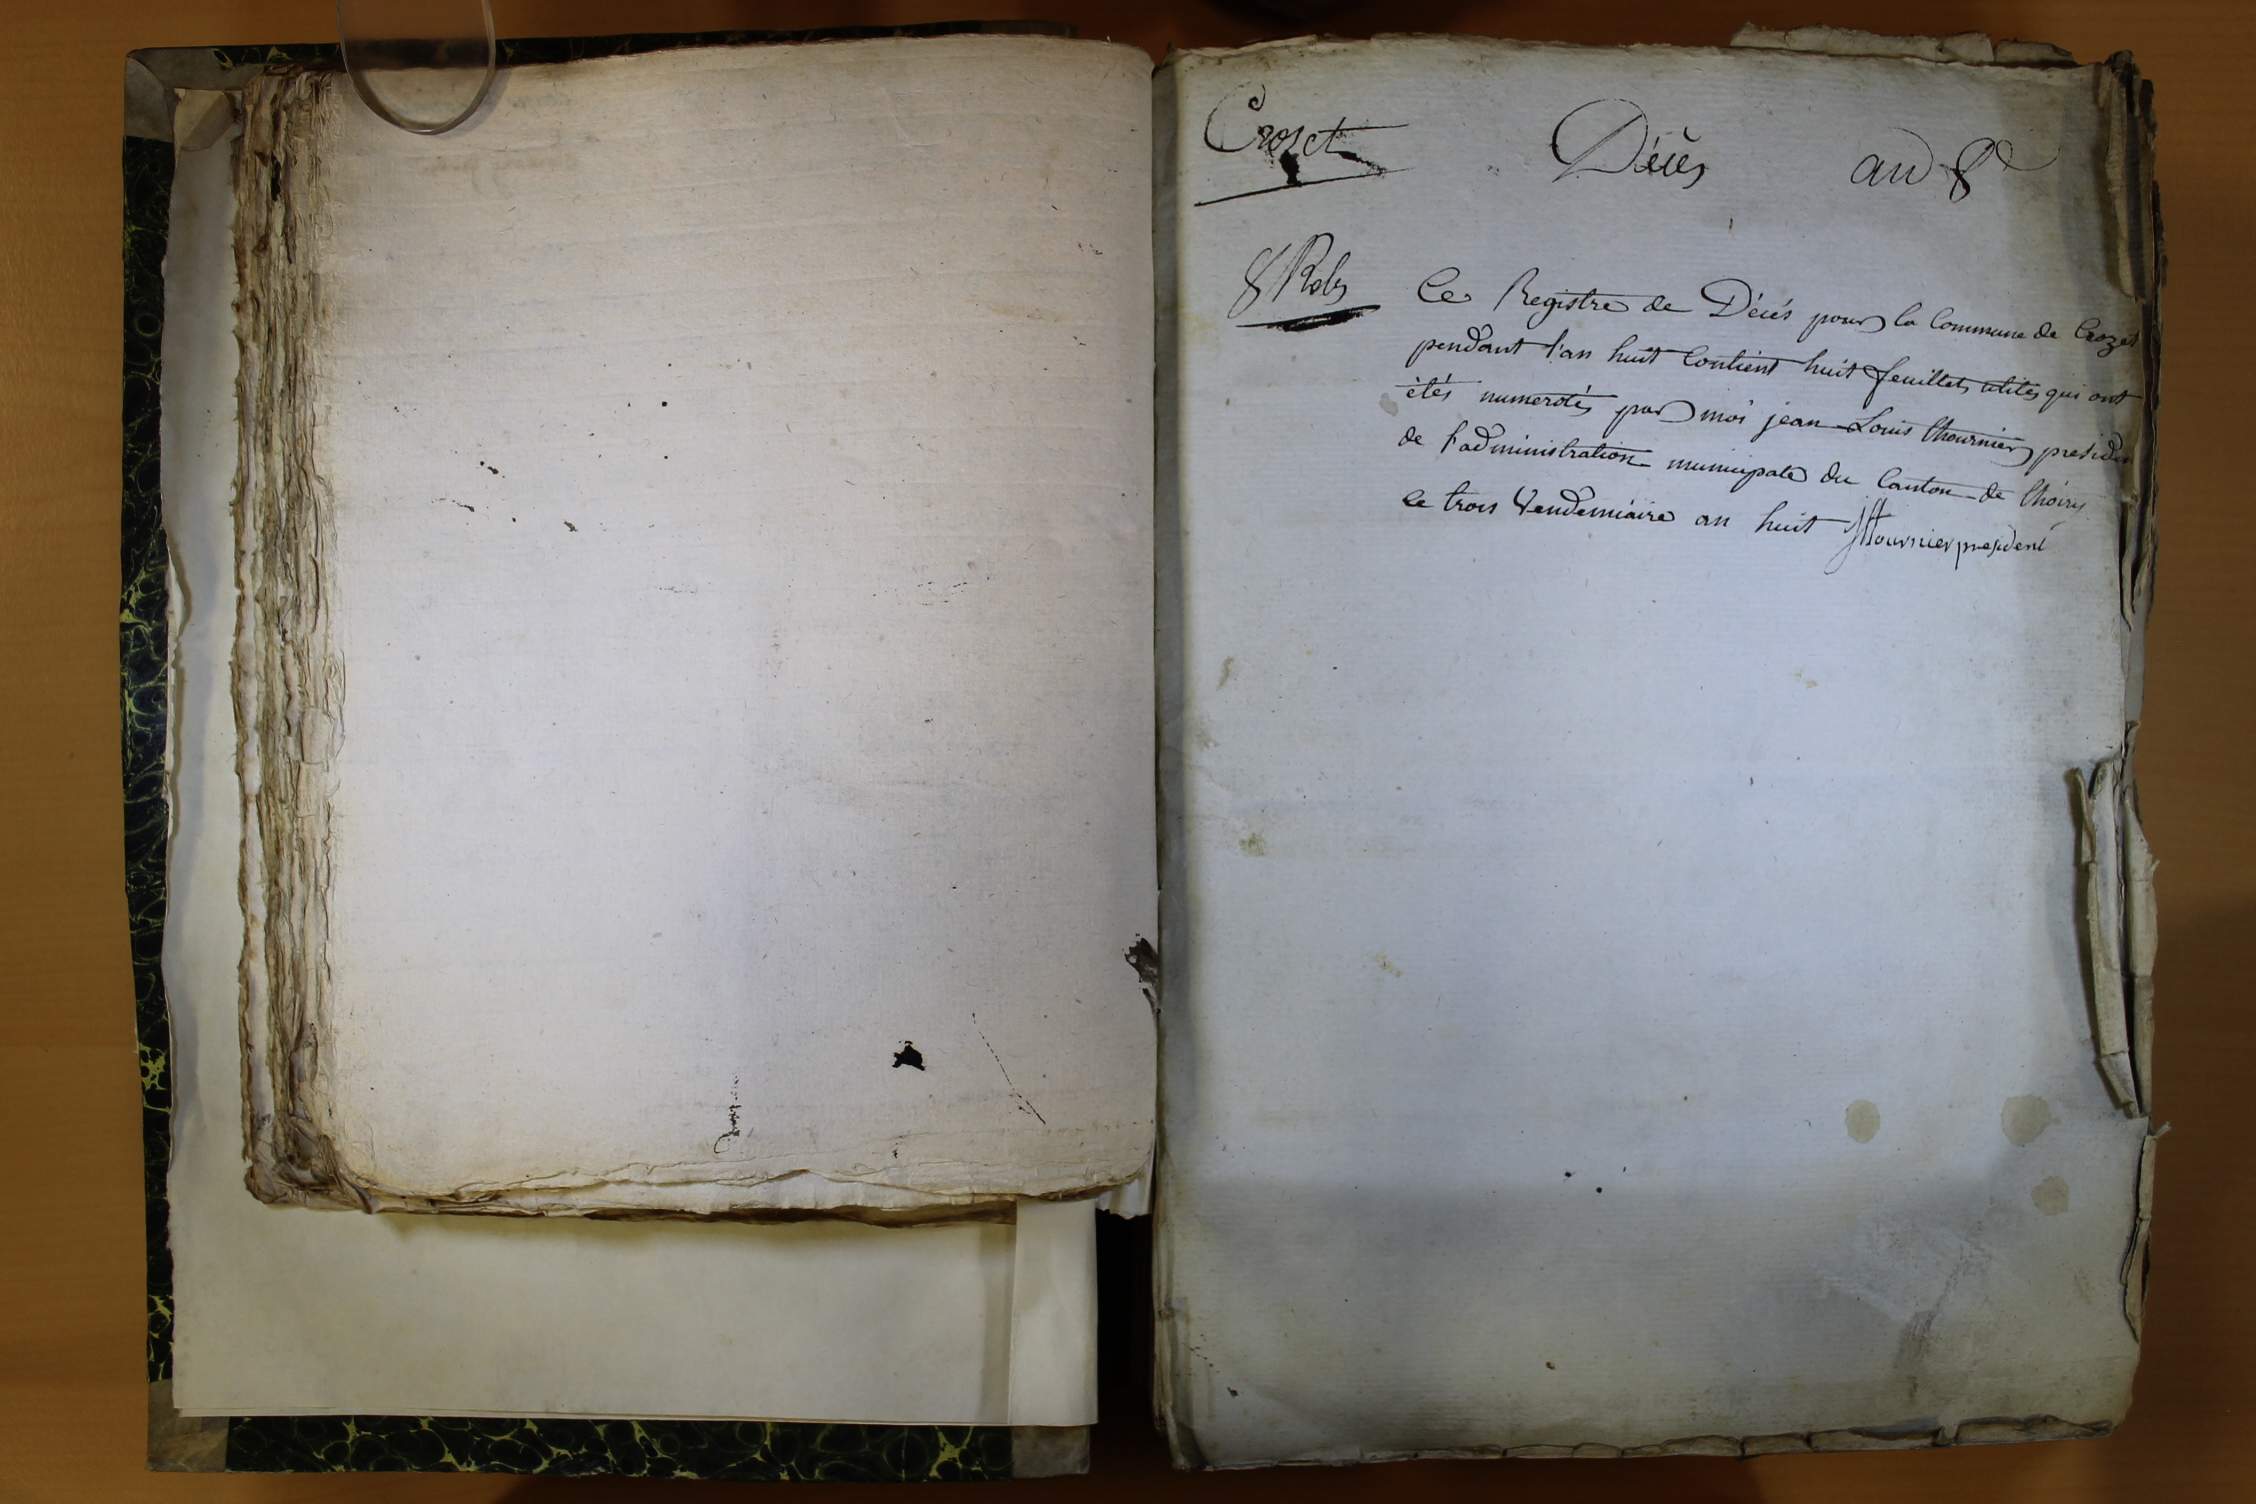 Crozet Décès an 8e
8 Roles
Ce Registre de Décés pour la Commune de Crozet
pendant l'an huit Contient huit feuillets utiles qui ont
étés numerotés par moi jean Louis thournier presiden
de l'administration municipale du Canton de thoiry
le trois Vendemiaire an huit JLthournier president